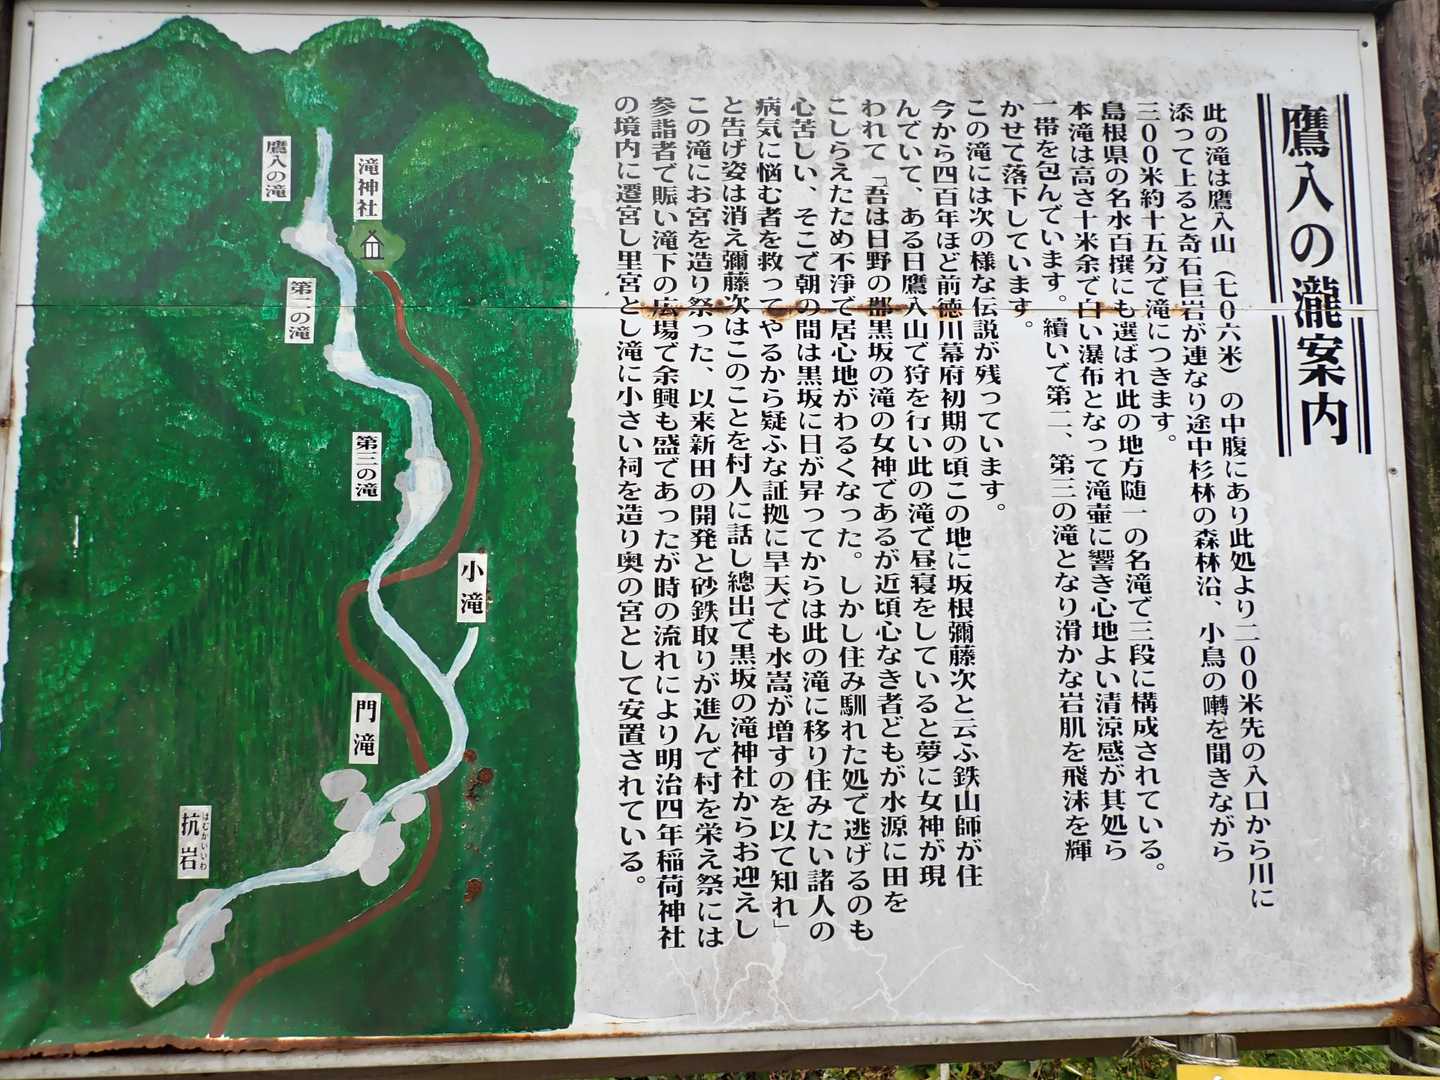 鷹入の瀧案内
此の滝は鷹入山（七０六米）の中腹にあり此処より二００米先の入口から川に
添って上ると奇石巨岩が連なり途中杉林の森林沿、小鳥の囀を聞きながら
三００米約十五分で滝につきます。
島根県の名水百撰にも選ばれ此の地方随一の名滝で三段に構成されている。
本滝は高さ十米余で白い瀑布となって滝壷に響き心地よい清涼感が其処ら
一帯を包んでいます。續いで第二、第三の滝となり滑かな岩肌を飛沫を輝
かせて落下しています。
この滝には次の様な伝説が残っています。
今から四百年ほど前徳川幕府初期の頃この地に坂根彌藤次と云ふ鉄山師が住
んでいて、ある日鷹入山で狩を行い此の滝で昼寝をしていると夢に女神が現
われて「吾は日野の郡黒坂の滝の女神であるが近頃心なき者どもが水源に田を
こしらえたため不淨で居心地がわるくなった。しかし住み馴れた処で逃げるのも
心苦しい、そこで朝の間は黒坂に日が昇ってからは此の滝に移り住みたい諸人の
病気に悩む者を救ってやるから疑ふな証拠に旱天でも水嵩が増すのを以て知れ」
と告げ姿は消え彌藤次はこのことを村人に話し總出で黒坂の滝神社からお迎えし
この滝にお宮を造り祭った、以来新田の開発と砂鉄取りが進んで村を栄え祭には
参詣者で賑い滝下の広場で余興も盛であったが時の流れにより明治四年稲荷神社
の境内に遷宮し里宮とし滝に小さい祠を造り奥の宮として安置されている。
鷹入の滝
滝神社
第二の滝
第三の滝
小滝
門滝
抗岩
はむかいいわ